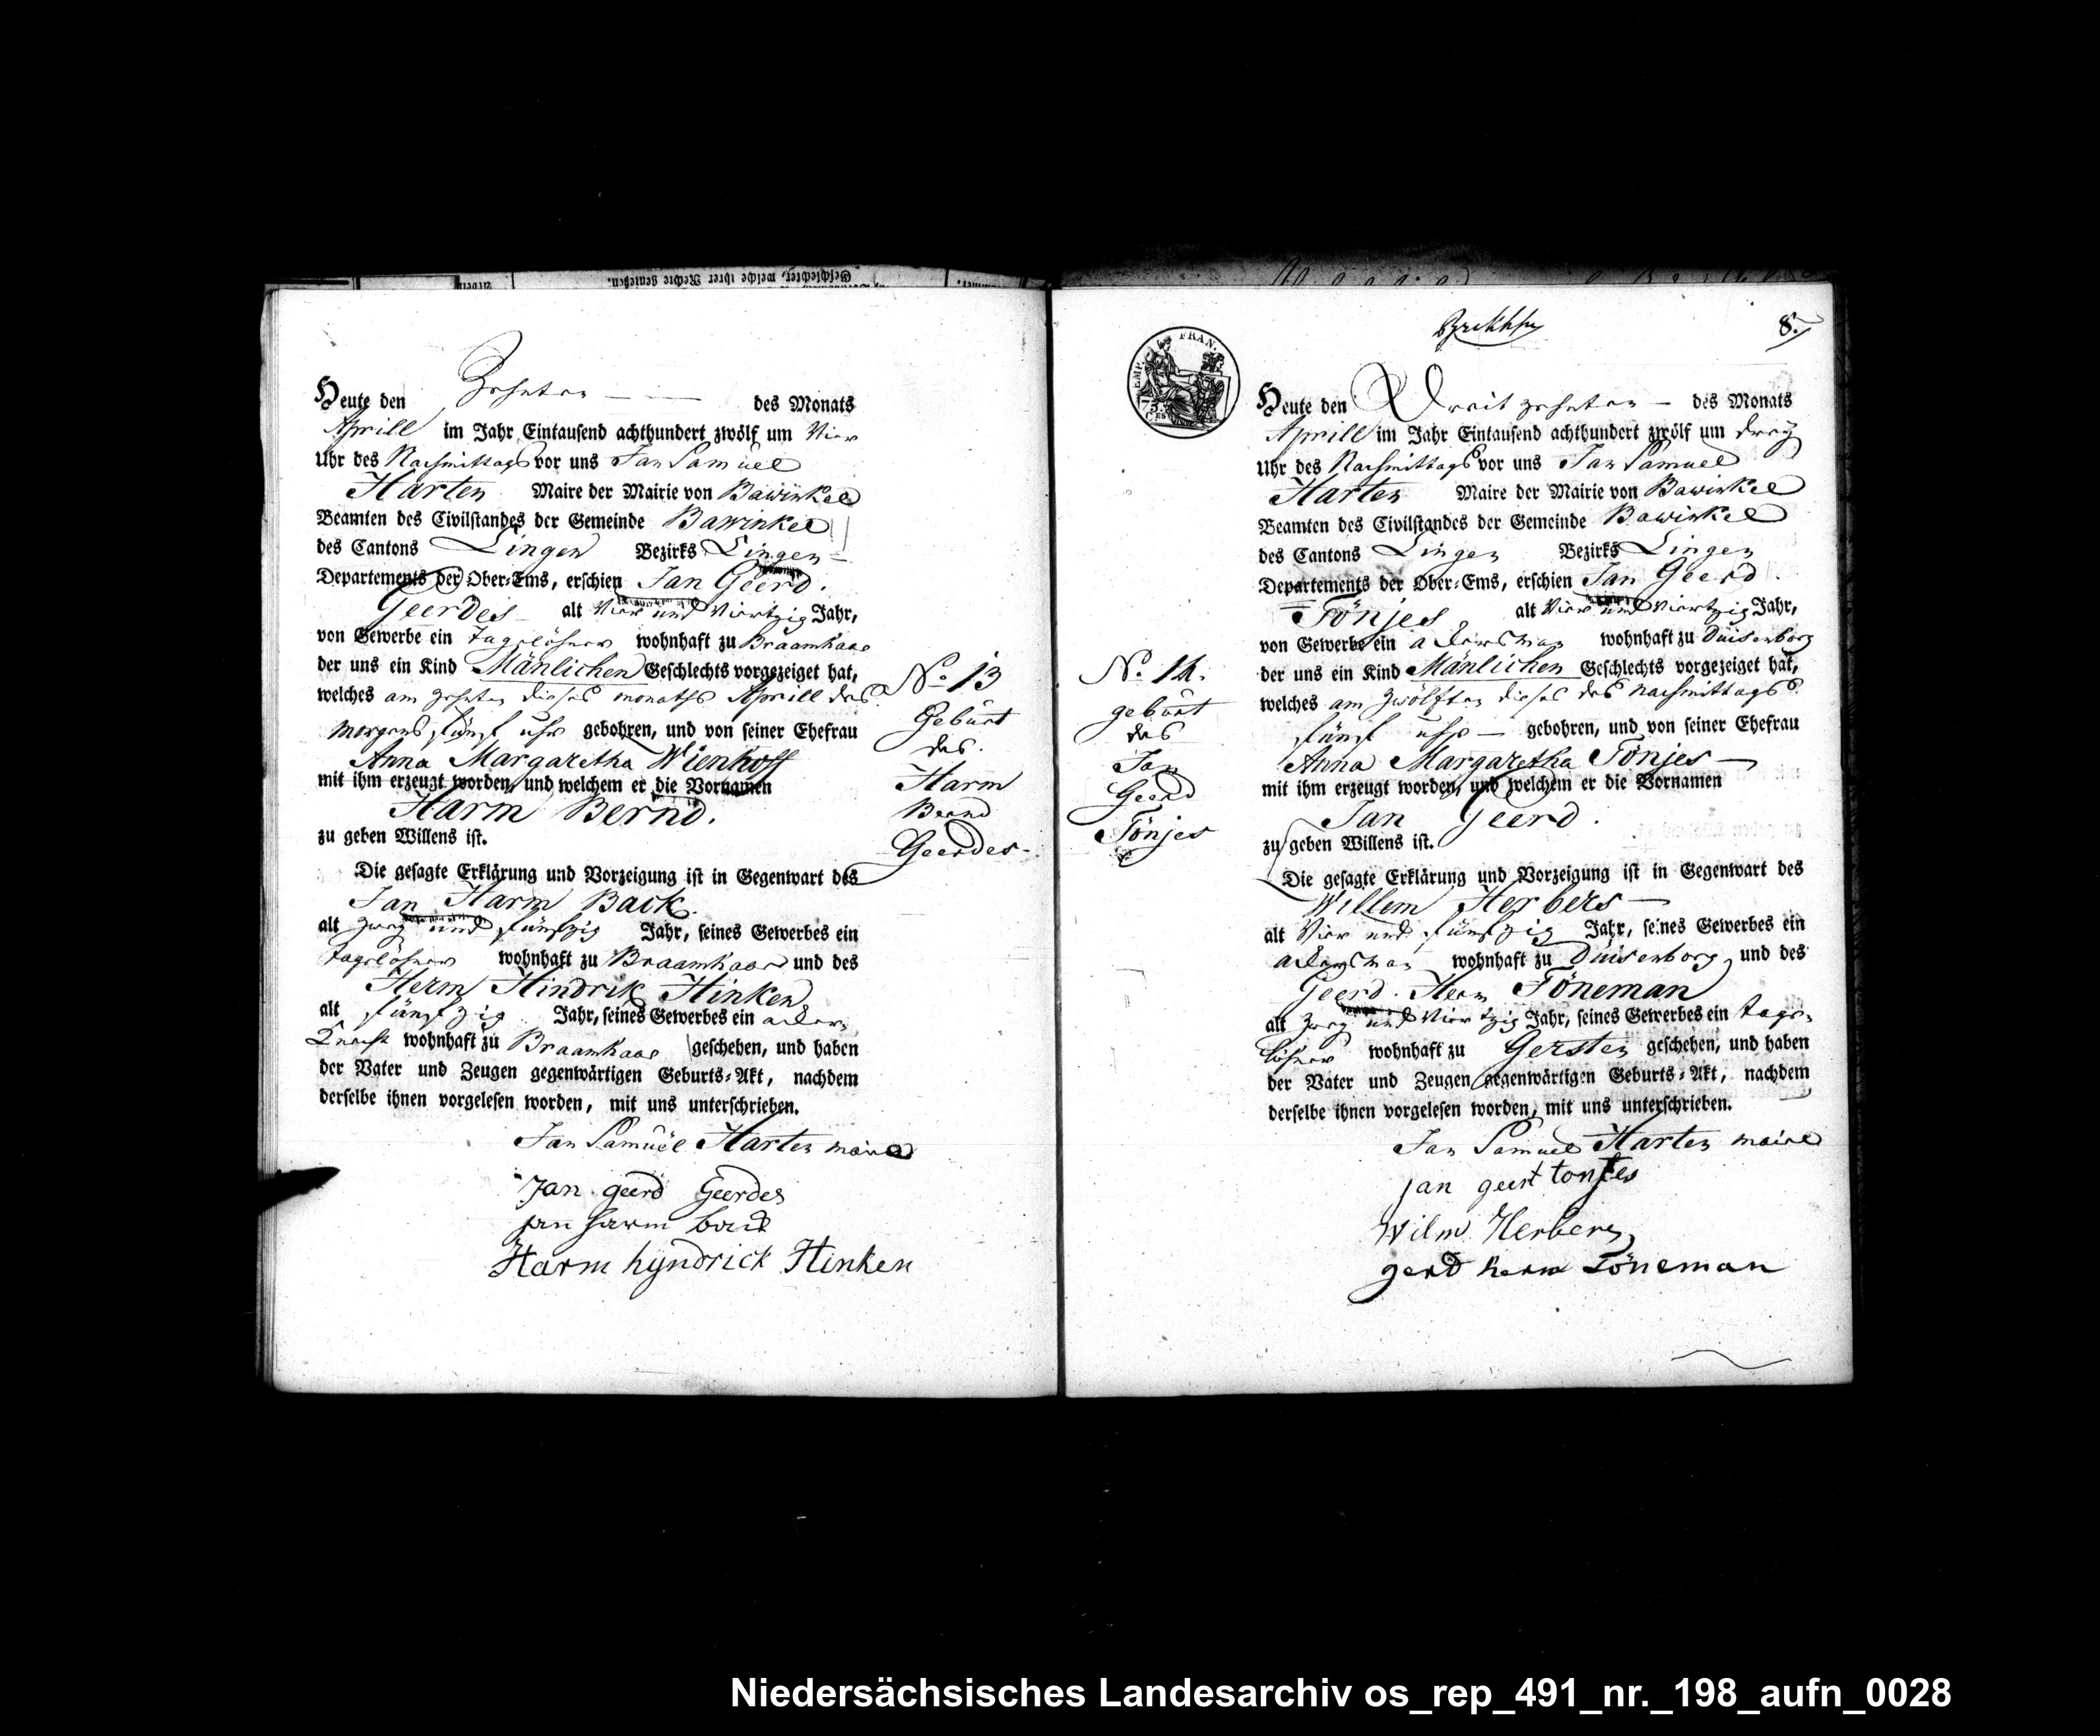 Zehnten — —
Heute den des Monats
Aprill im Jahr Eintausend achthundert zwölf um Vier
Uhr des Nachmittags vor uns Jan Samuel
Harten Maire der Mairie von Bawinkel
Beamten des Civilstandes der Gemeinde Bawinkel
des Cantons Lingen Bezirks Lingen
Departements der Ober-Ems, erschien Jan Geerd
Geerdes alt Vier und Viertzig Jahr,
von Gewerbe ein tagelöhner wohnhaft zu Braamhaar
der uns ein Kind Mänlichen Geschlechts vorgezeiget hat,
welches am zehnten dieses monaths Aprill des
morgens fünf uhr gebohren, und von seiner Ehefrau
Anna Margaretha Wienhoff
mit ihm erzeugt worden, und welchem er die Vornamen
Harm Bernd.
zu geben Willens ist.
Die gesagte Erklärung und Vorzeigung ist in Gegenwart des
Jan Harm Back
alt zwey und fünfzig Jahr, seines Gewerbes ein
tagelöhner wohnhaft zu Braamhaar und des
Herm Hindrik Hinken
alt fünfzig Jahr, seines Gewerbes ein acker-
Knecht wohnhaft zu Braamhaar geschehen, und haben
der Vater und Zeugen gegenwärtigen Geburts-Akt, nachdem
derselbe ihnen vorgelesen worden, mit uns unterschrieben.
Jan Samuël Harten maire
Jan geerd Geerdes
jan harm back
Harm hyndrick Hinken
No 13
Geburt
des.
Harm
Bernd
Geerdes
8.
EMP. FRAN.
75.
CES
Heute den Dreit zehnten — des Monats
Aprill im Jahr Eintausend achthundert zwölf um drey
Uhr des Nachmittags vor uns Jan Samuel
Harten Maire der Mairie von Bawinkel
Beamten des Civilstandes der Gemeinde Bawinkel
des Cantons Lingen Bezirks Lingen
Departements der Ober-Ems, erschien Jan Geerd
Tönjes alt Vier und Viertzig Jahr,
von Gewerbe ein ackersman wohnhaft zu Duisenborg
der uns ein Kind Mänlichen Geschlechts vorgezeiget hat,
welches am zwölften dieses des nachmittags
fünf uhr — gebohren, und von seiner Ehefrau
Anna Margaretha Tönjes —
mit ihm erzeugt worden, und welchem er die Vornamen
Jan Geerd.
zu geben Willens ist.
Die gesagte Erklärung und Vorzeigung ist in Gegenwart des
Willem Herbers —
alt Vier und fünfzig Jahr, seines Gewerbes ein
ackersman wohnhaft zu Duisenborg und des
Geerd Herm Töneman
alt zwey und Viertzig Jahr, seines Gewerbes ein tage-
löhner wohnhaft zu Gersten geschehen, und haben
der Vater und Zeugen gegenwärtigen Geburts-Akt, nachdem
derselbe ihnen vorgelesen worden, mit uns unterschrieben.
Jan Samuel Harten maire
jan geert tonjes
Wilm Herbers
gerd herm Töneman
No. 14.
geburt
des
Jan
Geerd
Tönjes
Niedersächsisches Landesarchiv os_rep_491_nr._198_aufn_0028